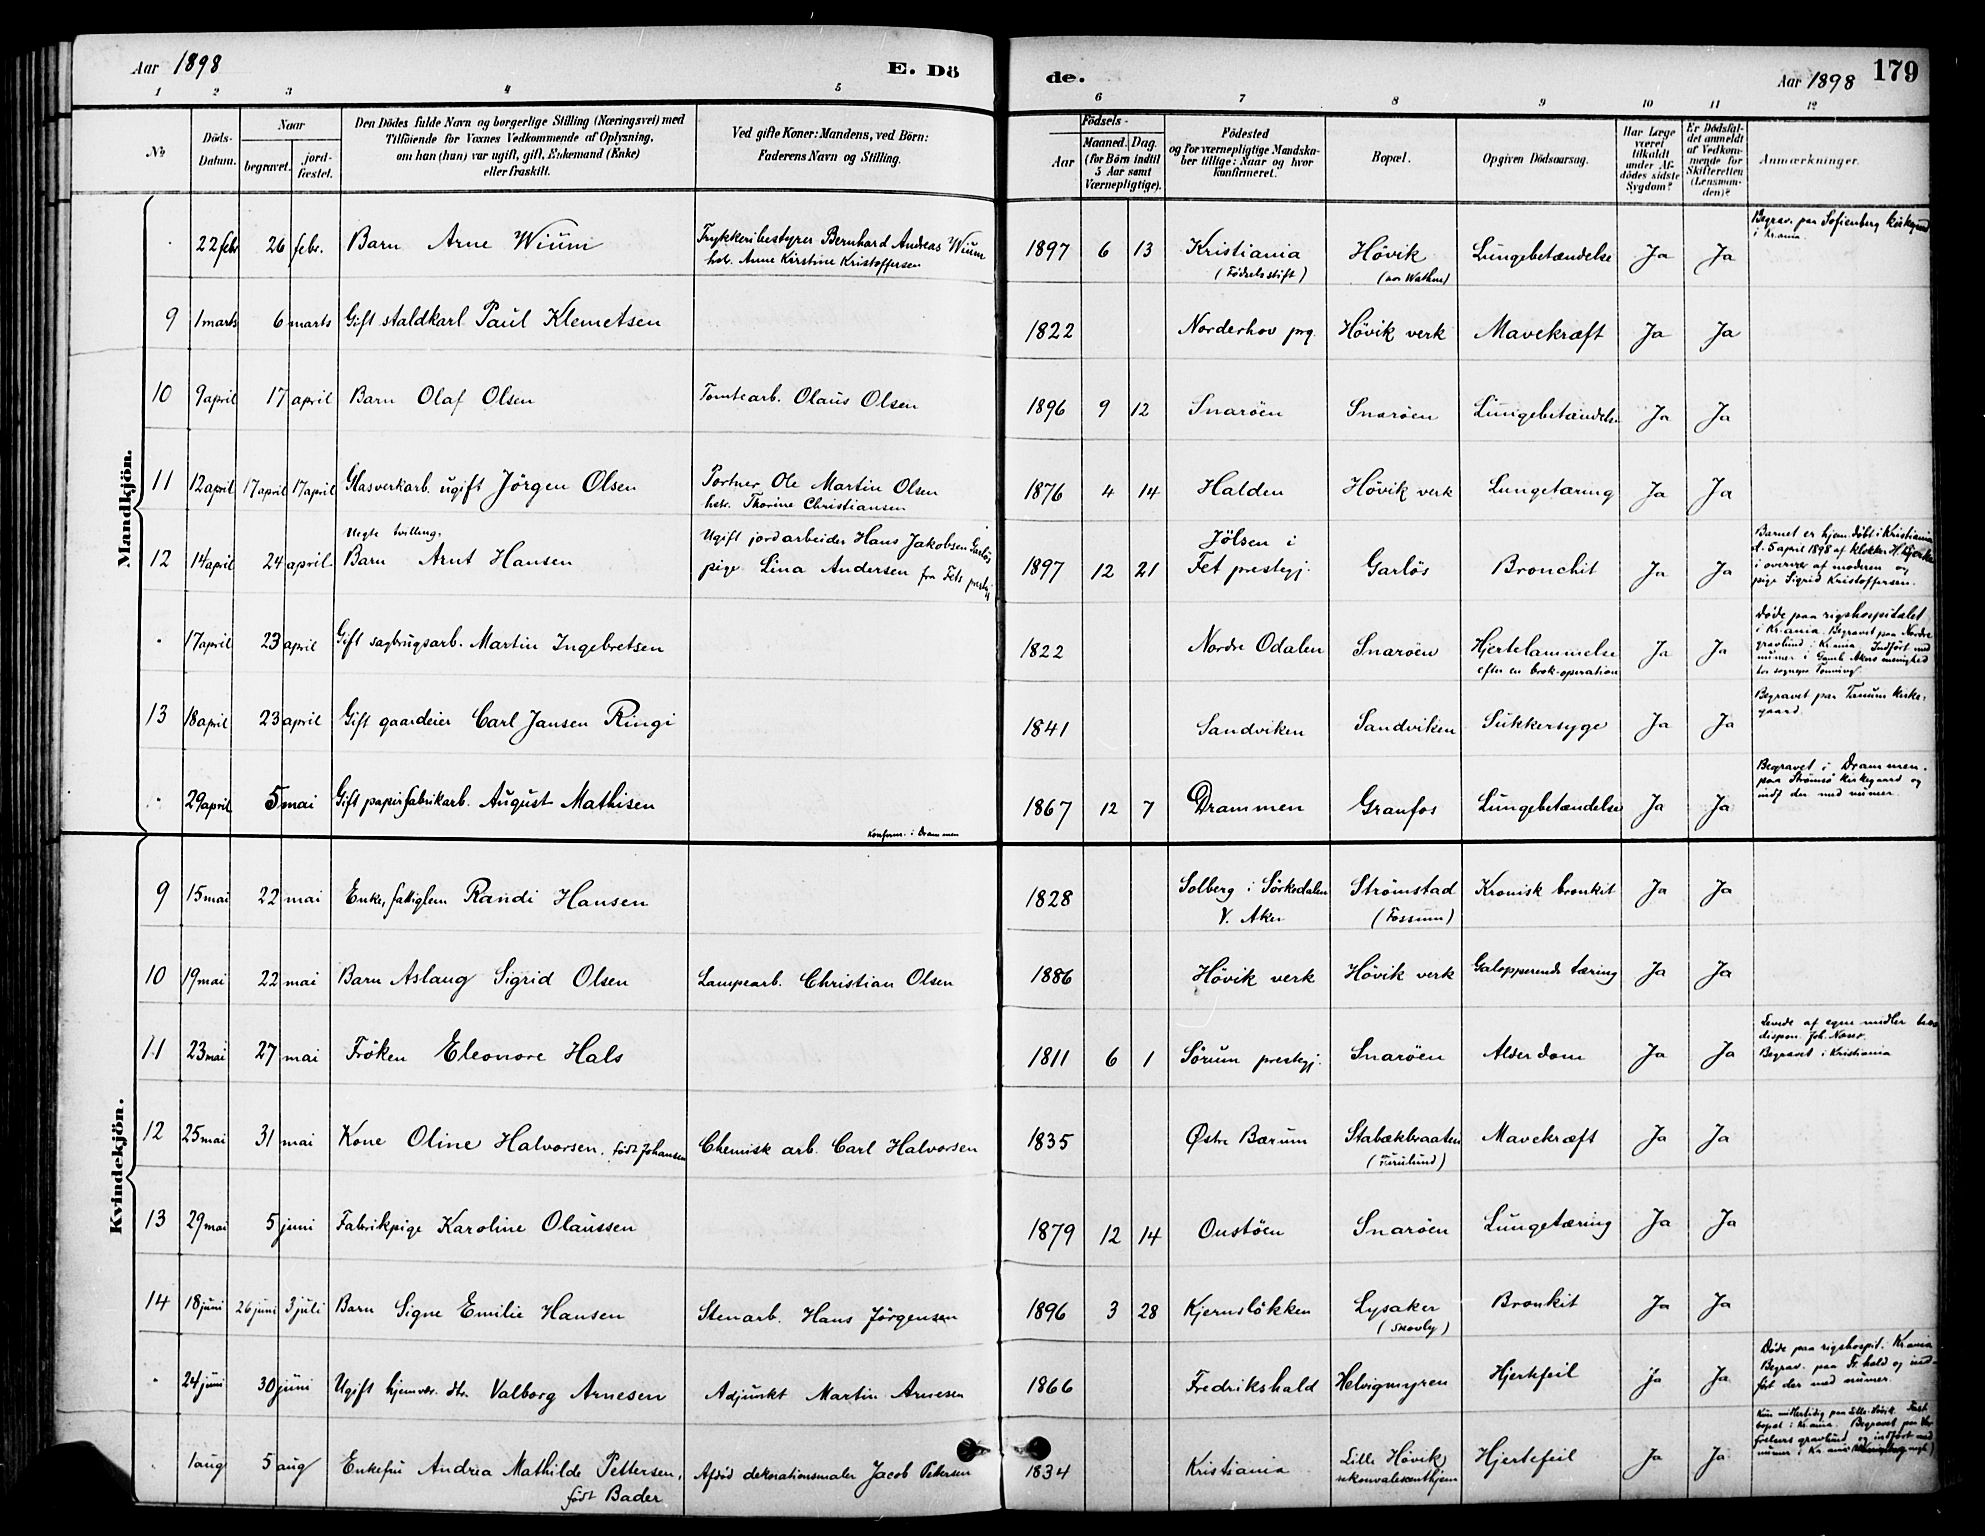 Aar 1898
E. Dö
de.
Aar 1898 179
1 2 3 4 5 6 7 8 9 10 11 12
No
Döds-Datum.
Naar
begravet.
jord-fæstet.
Den Dödes fulde Navn og borgerlige Stilling (Næringsvei) med
Tilföiende for Voxnes Vedkommende af Oplysning,
om han (hun) var ugift, gift, Enkemand (Enke)
eller fraskilt.
Ved gifte Koner: Mandens, ved Börn:
Faderens Navn og Stilling.
Födsels-
Aar
Maaned. Dag.
(for Börn indtil
5 Aar samt
Værnepligtige).
Födested
og for værnepligtige Mandska-
ber tillige: Naar og hvor
konfirmeret.
Bopæl.
Opgiven Dödsaarsag.
Har Læge
været
tilkaldt
under Af-
dödes sidste
Sygdom?
Er Dödsfal-
det anmeldt
af Vedkom-
mende for
Skifteretten
(Lensman-
den)?
Anmærkninger.
Mandkjön.
22 febr 26 febr. Barn Arne Wiùm Trykkeribestyrer Bernhard Andreas Wiùm 1897 6 13 Kristiania Hövik Lùngebetændelse Ja Ja Begrav. paa Sofienberg kirkegaard
hstr. Anne Kirstine Kristoffersen (Födselsstift) i Kr.ania.
9 1 marts 6 marts Gift staldkarl Paul Klemetsen 1822 Norderhov prg. Hövik verk Mavekræft Ja Ja
10 9 april 17 april Barn Olaf Olsen Tomtearb. Olaus Olsen 1896 9 12 Snaröen Snaröen Lùngebetændelse Ja Ja
11 12 april 17 april 17 april Glasverkarb. ugift Jörgen Olsen Portner Ole Martin Olsen 1876 4 14 Halden Hövik verk Lungetæring Ja Ja
hstr. Thorine Christiansen
Uegte tvilling.
12 14 april 24 april Barn Arnt Hansen Ugift jordarbeider Hans Jakobsen Garlös 1897 12 21 Jölsen i Fet prestegj. Garlös Bronchit Ja Ja
pige Lina Andersen fra Fets prestgj
Barnet er hjem. döbt i Kristiania
d. 5 april 1898 af klokker H.
i overvær af moderen og
pige Sigrid Kristoffersen.
17 april 23 april Gift sagbrugsarb. Martin Ingebretsen 1822 Nordre Odalen Snaröen Hjertelammelse Ja Ja
efter en brok-operation
Döde paa rigshospitalet
i Kr.ania. Begravet paa Nordre
gravlund i Kr.ania. Indfört med
nùmer i Gamle Akers menighed
13 18 april 23 april Gift gaardeier Carl Jansen Ringi 1841 Sandviken Sandviken Sùkkersyge Ja Ja Begravet paa Tanum kirke-
gaard.
29 april 5 mai Gift papirfabrikarb. August Mathisen 1867 12 7 Drammen Granfos Lùngebetændelse Ja Ja
Konfirm. i Drammen
Begravet i Drammen
paa Strömsö kirkegaard og
indf. der med nùmer.
Kvindekjön.
9 15 mai 22 mai Enke, fattiglem Randi Hansen 1828 Solberg i Sörkedalen Strömstad Kronisk bronkit Ja Ja
V. Aker (Fossum)
10 19 mai 22 mai Barn Aslaug Sigrid Olsen Lampearb. Christian Olsen 1886 Hövik verk Hövik verk Galopperende tæring Ja Ja
11 23 mai 27 mai Fröken Eleonore Hals 1811 6 1 Sörum prestegj. Snaröen Alderdom Ja Ja
Levede af egne midler hos
dispon. Joh.
Begravet i Kristiania
12 25 mai 31 mai Kone Oline Halvorsen, födt Johansen Chemisk arb. Carl Halvorsen 1835 Østre Bærum Stabækbraaten Mavekræft Ja Ja
(Furulund)
13 29 mai 5 juni Fabrikpige Karoline Olaùssen 1879 12 14 Oustöen Snaröen Lùngetæring Ja Ja
14 18 juni 26 juni 3 juli Barn Signe Emilie Hansen Stenarb. Hans Jörgensen 1896 3 28 Kjernslökken Lysaker Bronkit Ja Ja
(Snovly)
24 juni 30 juni Ugift hjemvær. dtr. Valborg Arnesen Adjunkt Martin Arnesen 1866 Fredrikshald Helvigmyren Hjertefeil Ja Ja
Döde paa rigshospit. Kr.ania
Begrav. paa Fr.hald og ind-
fört der med nùmer.
1 aug 5 aug Enkefru Andrea Mathilde Pettersen, Afdöd dekorationsmaler Jacob Petersen 1834 Kristiania Lille Hövik Hjertefeil Ja Ja
födt Bader rekonvalesenthjem
Kun midlertidig paa Lille-Hövik. Fast
bopæl i Kr.ania. Begravet paa Vor
frelsers gravlund og indfört med
nùmer i Kr.ania